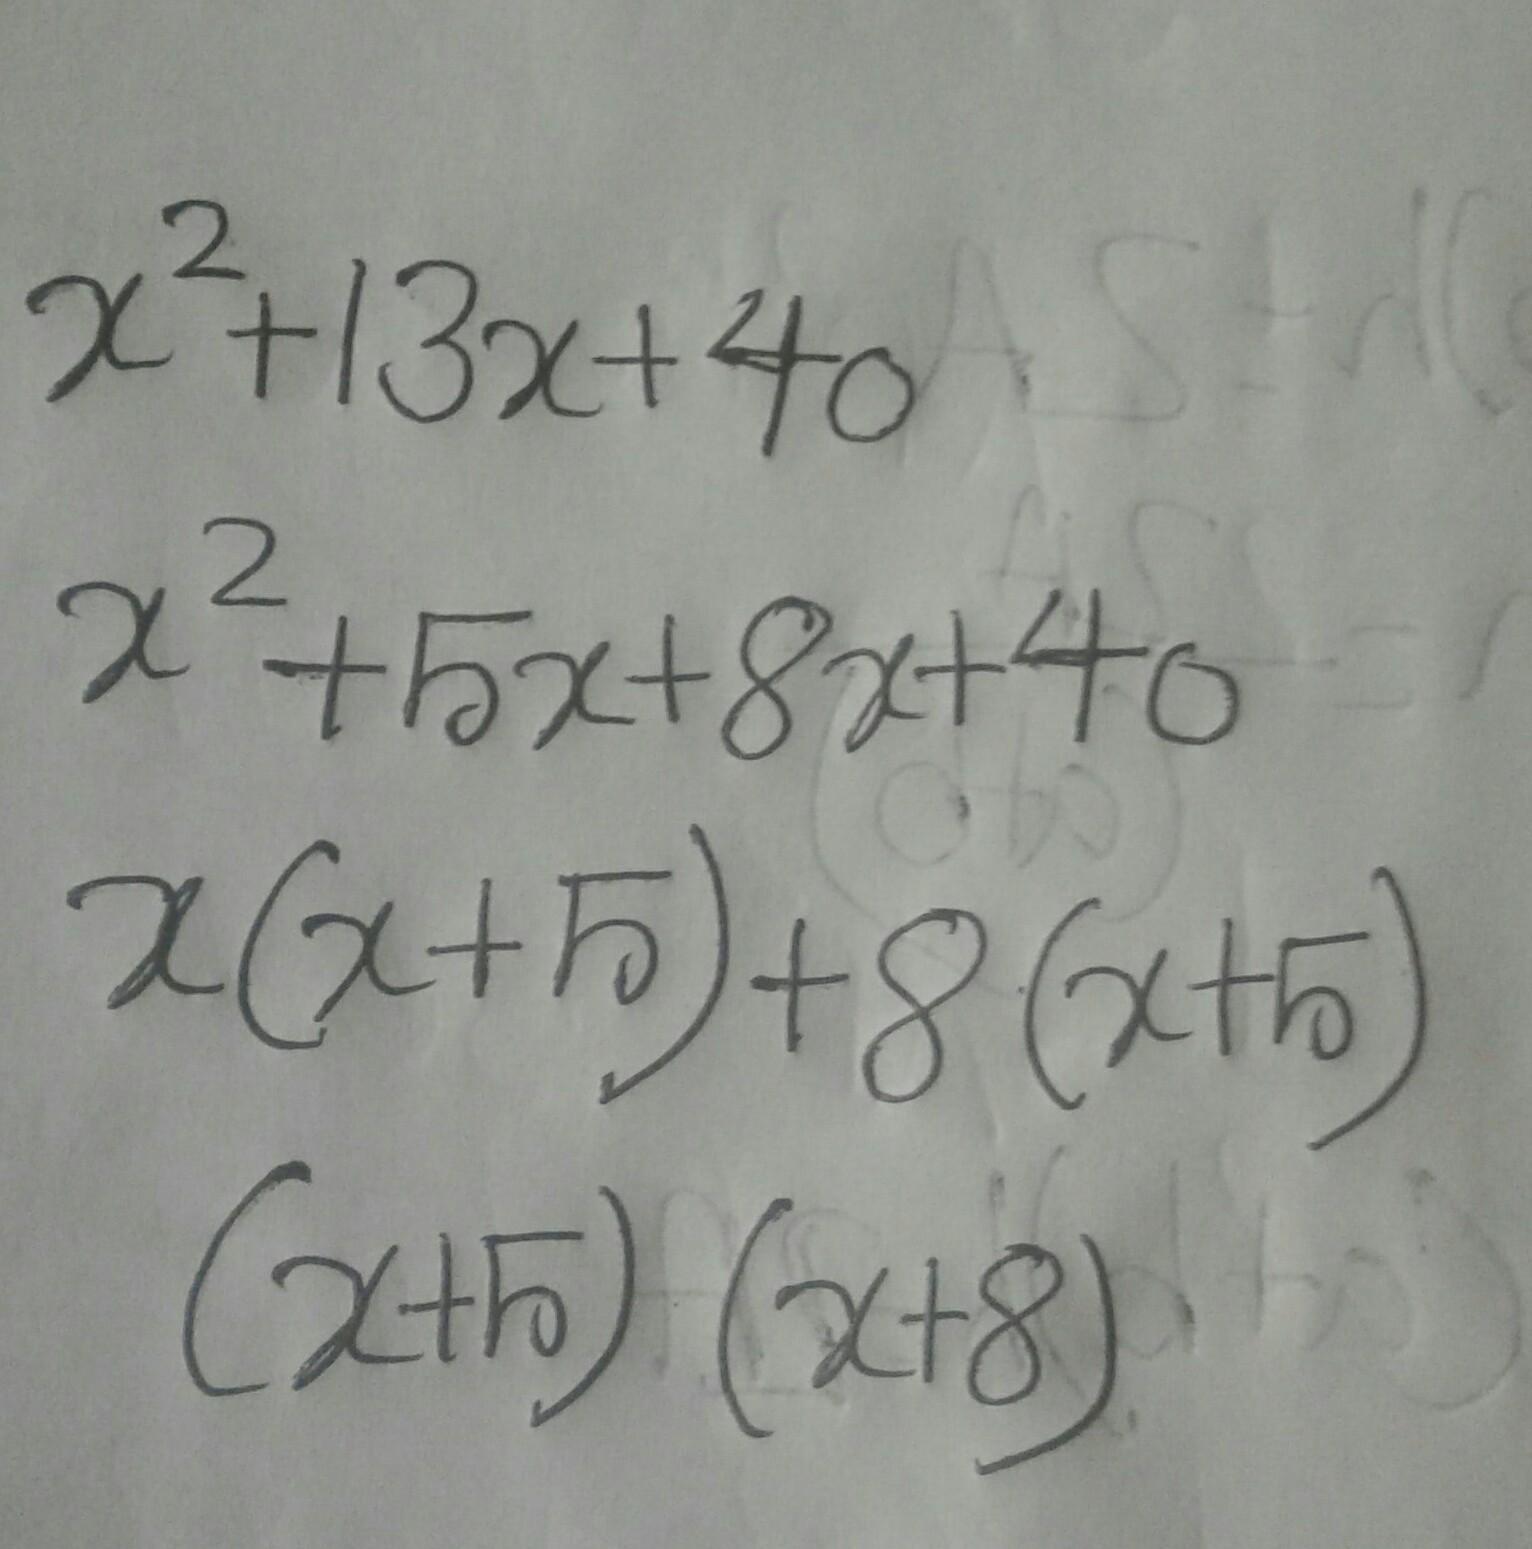 x²+13x+40
x²+5x+8x+40
x(x+5)+8(x+5)
(x+5)(x+8)